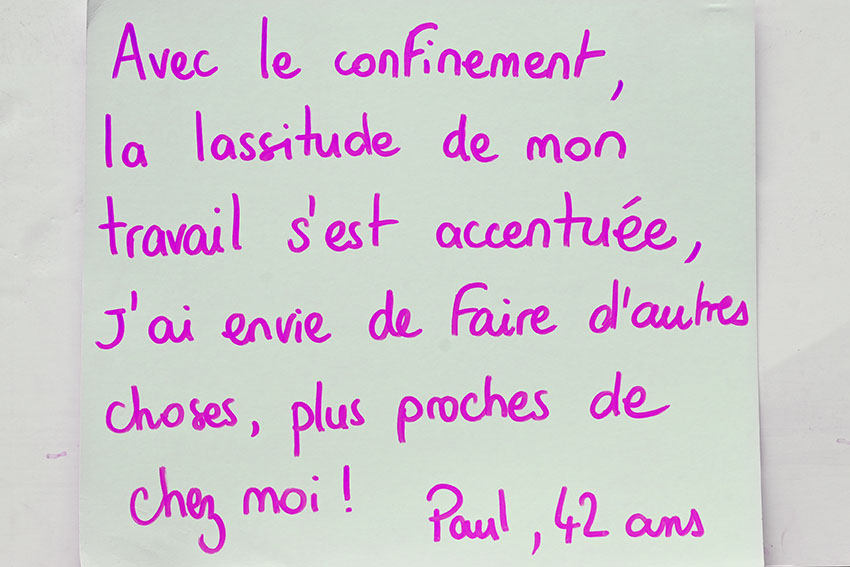 Avec le confinement,
la lassitude de mon
travail s'est accentuée,
J'ai envie de faire d'autres
choses, plus proches de
chez moi !
Paul, 42 ans